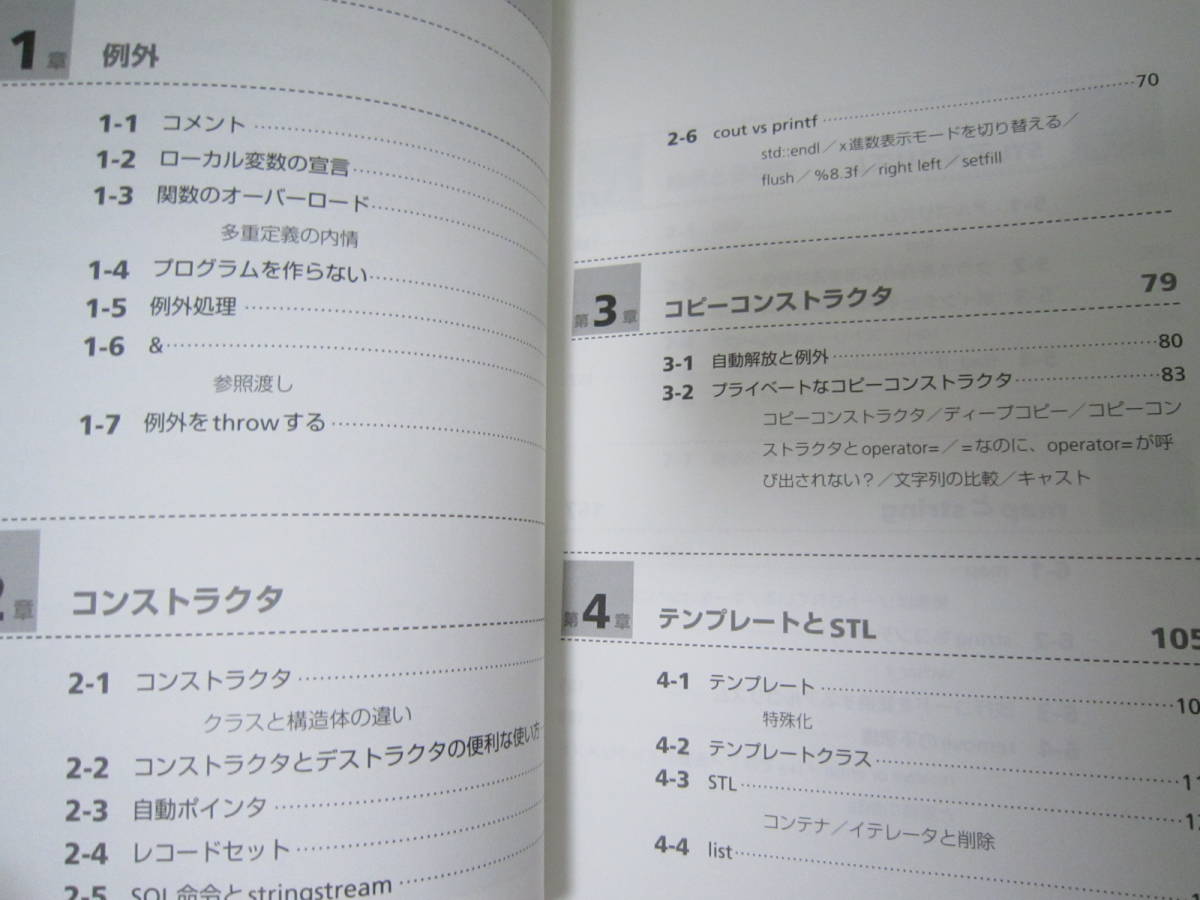 1章 例外
1-1 コメント
1-2 ローカル変数の宣言
1-3 関数のオーバーロード
多重定義の内情
1-4 プログラムを作らない
1-5 例外処理
1-6 &
参照渡し
1-7 例外をthrowする
2章 コンストラクタ
2-1 コンストラクタ
クラスと構造体の違い
2-2 コンストラクタとデストラクタの便利な使い方
2-3 自動ポインタ
2-4 レコードセット
2-5 SQL命令とstringstream
2-6 cout vs printf 70
std::endl/x進数表示モードを切り替える/
flush/%8.3f/right left/setfill
第3章 コピーコンストラクタ 79
3-1 自動解放と例外 80
3-2 プライベートなコピーコンストラクタ 83
コピーコンストラクタ/ディープコピー/コピーコン
ストラクタとoperator=/=なのに、operator=が呼
び出されない?/文字列の比較/キャスト
第4章 テンプレートとSTL 105
4-1 テンプレート
特殊化
4-2 テンプレートクラス
4-3 STL
コンテナ/イテレータと削除
4-4 list